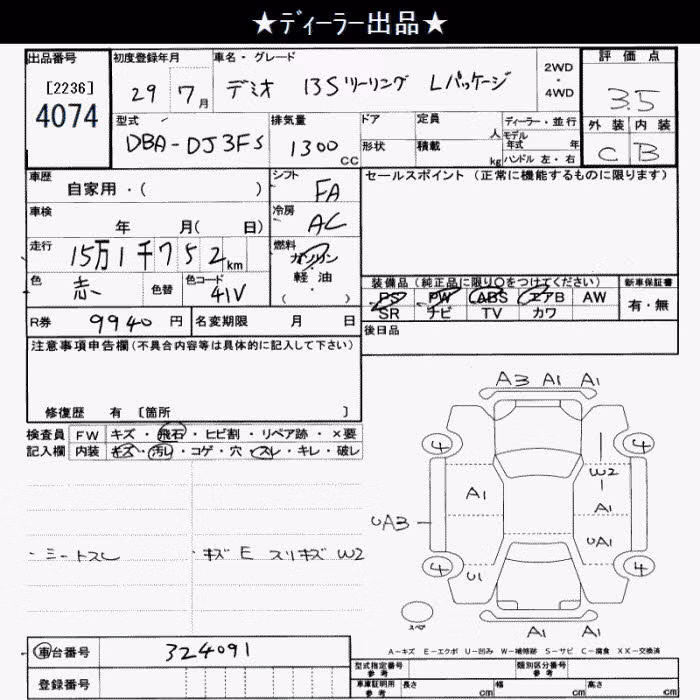 ★ディーラー出品★
出品番号
[2236]
4074
初度登録年月
29年 7月
車名・グレード
デミオ 13Sツーリング Lパッケージ
2WD
・
4WD
評価点
3.5
外装 内装
C B
型式
DBA-DJ3FS
排気量
1300
CC
ドア
形状
定員
人
積載
kg
ディーラー・並行
モデル
年式 年
ハンドル 左・右
車歴
自家用・( )
シフト
FA
車検
年 月( 日)
冷房
AC
走行
15万1千752km
燃料
ガソリン
・
軽油
( ・ )
色
赤
色替
色コード
41V
R券
9940円
名変期限 月 日
セールスポイント (正常に機能するものに限ります)
装備品 (純正品に限り○をつけてください)
PS PW ABS エアB AW
SR ナビ TV カワ
新車保証書
有・無
後日品
注意事項申告欄 (不具合内容等は具体的に記入して下さい)
修復歴 有 〔箇所 〕
検査員
記入欄
FW キズ・飛石・ヒビ割・リペア跡・×要
内装 キズ・汚レ・コゲ・穴・スレ・キレ・破レ
・シートスレ
・キズ E スリキズ W2
A3 A1 A1
4 4
W2
A1 A1
UA3 UA1
4 4
U1
スペア
A1 A1
A－キズ E－エクボ U－凹み W－補修跡 S－サビ C－腐食 XX－交換済
車台番号 324091
登録番号
型式指定番号
参考
類別区分番号
参考
車庫証明用
参考
長さ cm 幅 cm 高さ cm